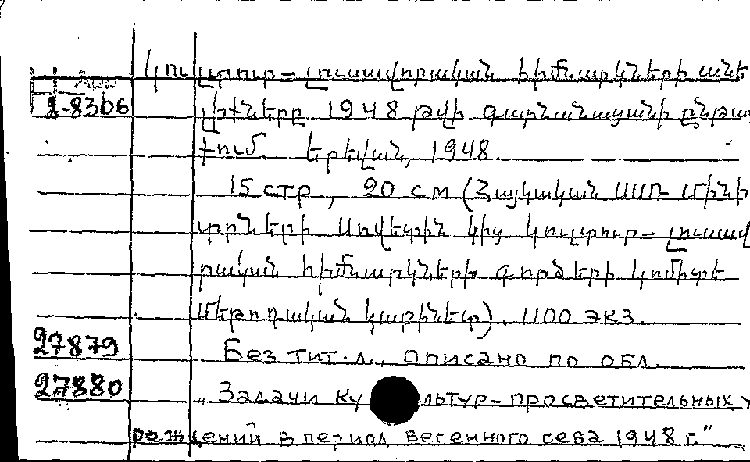 Կուլտուր-լուսավորական հիմնարկների անե
2-8306 լիքները 1948 թվի գարնանացանի ընթաց
քում. Երեվան, 1948.
15 стр., 20 см (Հայկական ՍՍՌ Մինի
ստրների Սովետին կից կուլտուր-լուսավ
րական հիմնարկների գործերի կոմիտե
Մեթոդական կաբինետ). 1100 экз.
27879 Без тит. л., описано по обл.
27880 „Задачи культур-просветительных у
реждений в период весеннего сева 1948 г."